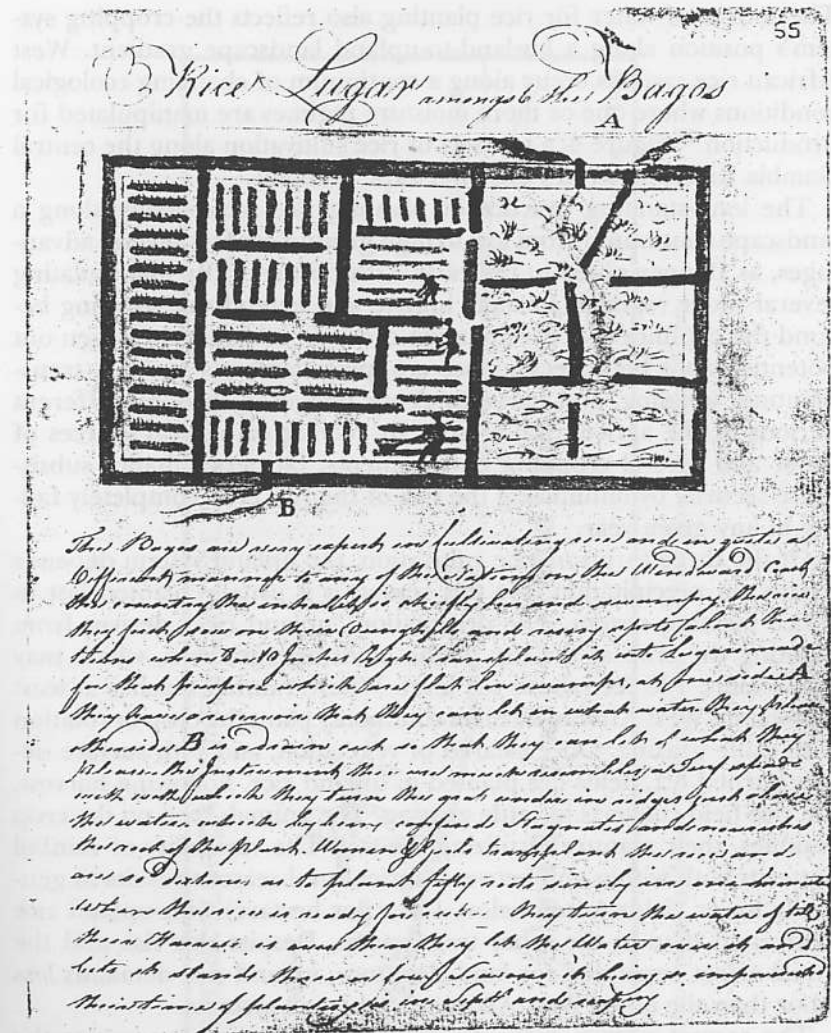 55
Rice Lugar amongst the Bagos
A
B
The Bagos are very expert in Cultivating rice and in quite a
Different manner to any of the Nations on the Windward Coast
the country they inhabit is chiefly loam and swampy. The rice
they first sew on their dunghills and rising spots about their
towns when 8 or 10 Inches high transplant it into lugars made
for that purpose which are flat low swamps, at one side A
they have a reservoir that they can let in what water they please
other side B is a drain out so that they can let of what they
please the Instrument they use much resembles a Turf spade
with which they turn the grass under in ridges just above
the water which by being confined Stagnates and nourishes
the root of the plant. Women & Girls transplant the rice and
are so dexterous as to plant fifty roots singly in one minute
when the rice is ready for they turn the water of till
their Harvest is over then they let the Water over it and
lets it stand three or four Seasons it being so impoverished
their time of planting is in Septr and reaping